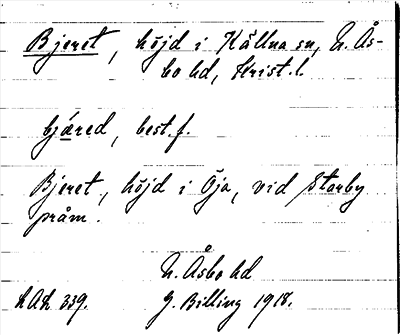 Bjeret, höjd i Källna sn, N. Ås-
bo hd, Krist. l.
bjäred, best. f.
Bjeret, höjd i Öja, vid Starby
präm.
N. Åsbo hd
h A h 339. G. Billing 1918.